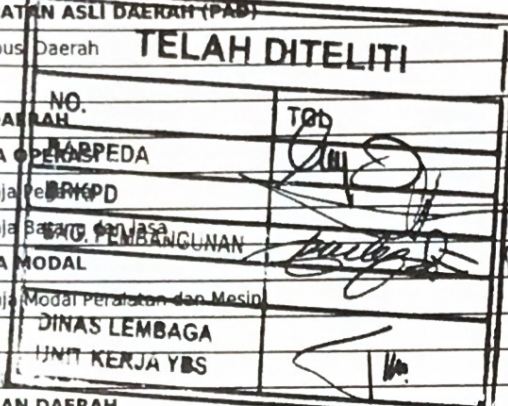 ATAN ASLI DAERAH (PAD)
pus Daerah
TELAH DITELITI
NO.
TGL
DAERAH
A OPERASI
BAPPEDA
ja Pegawai
BPKPD
ja Barang dan Jasa
BAG. PEMBANGUNAN
A MODAL
ja Modal Peralatan dan Mesin
DINAS LEMBAGA
UNIT KERJA YBS
AN DAERAH